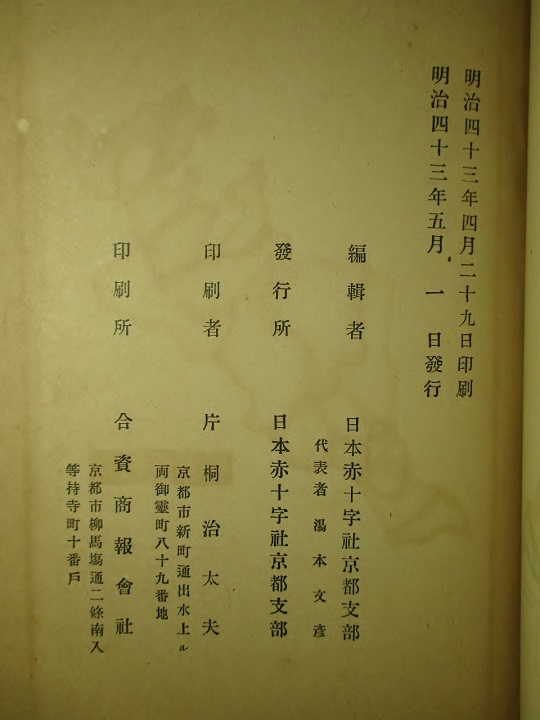 明治四十三年四月二十九日印刷
明治四十三年五月一日發行
編輯者 日本赤十字社京都支部
代表者 湯本文彥
發行所 日本赤十字社京都支部
印刷者 片桐治太夫
京都市新町通出水上ル
両御靈町八十九番地
印刷所 合資商報會社
京都市柳馬塲通二條南入
等持寺町十番戶